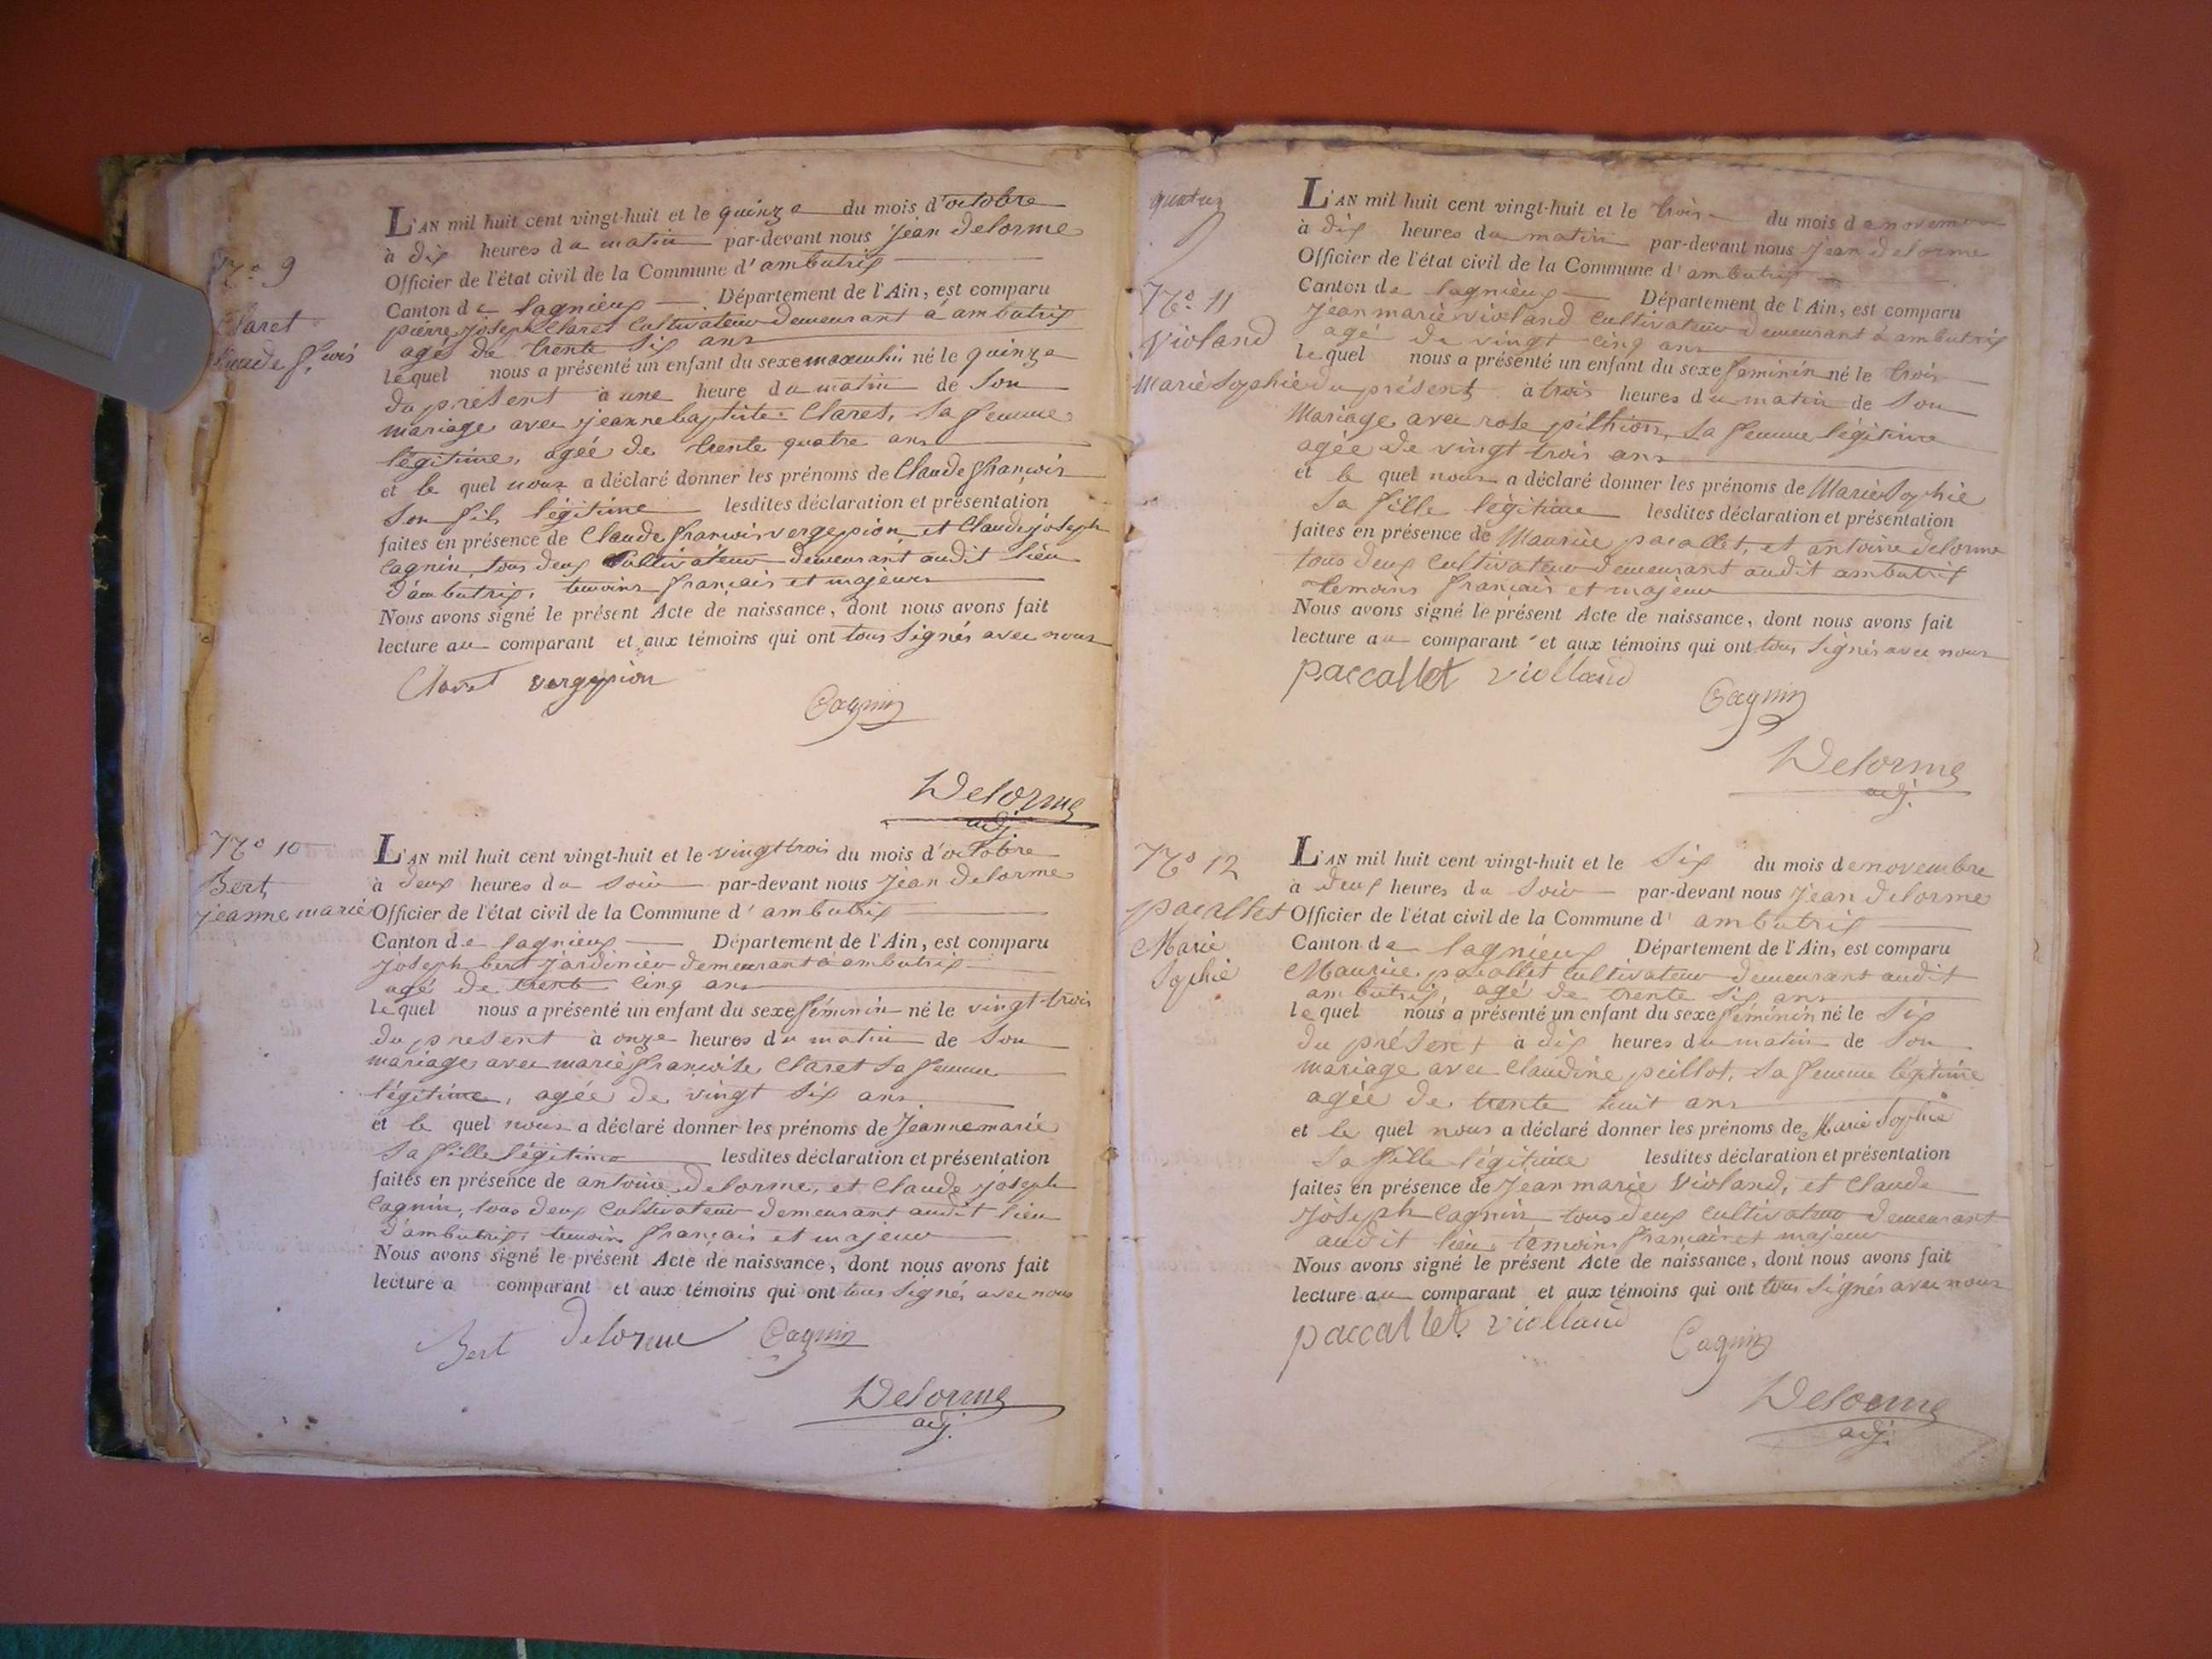 N.o 9
Claret
Claude f.cois
L'AN mil huit cent vingt-huit et le quinze du mois d'octobre
à dix heures du matin par-devant nous jean delorme
Officier de l'état civil de la Commune d'ambutrix
Canton de lagnieux Département de l'Ain, est comparu
pierre joseph Claret Cultivateur demeurant à ambutrix
agé de trente six ans
lequel nous a présenté un enfant du sexe masculin né le quinze
du présent à une heure du matin de Son
mariage avec jeanne baptiste Claret, Sa femme
légitime, agée de trente quatre ans
et le quel nous a déclaré donner les prénoms de Claude françois
Son fils légitime lesdites déclaration et présentation
faites en présence de Claude françois vergepion et Claude joseph
Cagnin tous deux Cultivateur demeurant audit lieu
d'ambutrix, temoins français et majeurs
Nous avons signé le présent Acte de naissance, dont nous avons fait
lecture au comparant et aux témoins qui ont tous Signés avec nous
Claret vergepion
Cagnin
Delorme
adj.
N.o 10
Bert
jeanne marie
L'AN mil huit cent vingt-huit et le vingt trois du mois d'octobre
à deux heures du soir par-devant nous jean delorme
Officier de l'état civil de la Commune d'ambutrix
Canton de lagnieux Département de l'Ain, est comparu
joseph bert jardinier demeurant à ambutrix
agé de trente cinq ans
lequel nous a présenté un enfant du sexe féminin né le vingt-trois
du présent à onze heures du matin de Son
mariage avec marie françoise Claret Sa femme
légitime, agée de vingt Six ans
et le quel nous a déclaré donner les prénoms de Jeanne marie
Sa fille légitime lesdites déclaration et présentation
faites en présence de antoine delorme, et Claude joseph
Cagnin, tous deux Cultivateur demeurant audit lieu
d'ambutrix, temoins français et majeur
Nous avons signé le présent Acte de naissance, dont nous avons fait
lecture a comparant et aux témoins qui ont tous Signés avec nous
Bert delorme Cagnin
Delorme
adj.
quatre
N.o 11
violand
Marie Sophie
L'AN mil huit cent vingt-huit et le trois du mois de novembre
à dix heures du matin par-devant nous jean delorme
Officier de l'état civil de la Commune d'ambutrix
Canton de lagnieux Département de l'Ain, est comparu
jean marie violand Cultivateur demeurant à ambutrix
agé de vingt cinq ans
lequel nous a présenté un enfant du sexe féminin né le trois
du présent à trois heures du matin de Son
Mariage avec rose pithion, Sa femme légitime
agée de vingt trois ans
et le quel nous a déclaré donner les prénoms de Marie Sophie
Sa fille légitime lesdites déclaration et présentation
faites en présence de Maurice pacallet, et antoine delorme
tous deux Cultivateur demeurant audit ambutrix
temoins français et majeur
Nous avons signé le présent Acte de naissance, dont nous avons fait
lecture au comparant et aux témoins qui ont tous Signés avec nous
paccallet violland
Cagnin
Delorme
adj.
N.o 12
pacallet
Marie
Sophie
L'AN mil huit cent vingt-huit et le Six du mois de novembre
à deux heures du Soir par-devant nous jean delorme
Officier de l'état civil de la Commune d'ambutrix
Canton de lagnieux Département de l'Ain, est comparu
Maurice pacallet Cultivateur demeurant audit
ambutrix, agé de trente Six ans
lequel nous a présenté un enfant du sexe féminin né le Six
du présent à dix heures du matin de Son
mariage avec Claudine peillot, Sa femme légitime
agée de trente huit ans
et le quel nous a déclaré donner les prénoms de Marie Sophie
Sa fille légitime lesdites déclaration et présentation
faites en présence de Jean marie Violand, et Claude
joseph Cagnin tous deux Cultivateur demeurant
audit lieu, temoins français et majeur
Nous avons signé le présent Acte de naissance, dont nous avons fait
lecture au comparant et aux témoins qui ont tous Signés avec nous
paccallet violland
Cagnin
Delorme
adj.